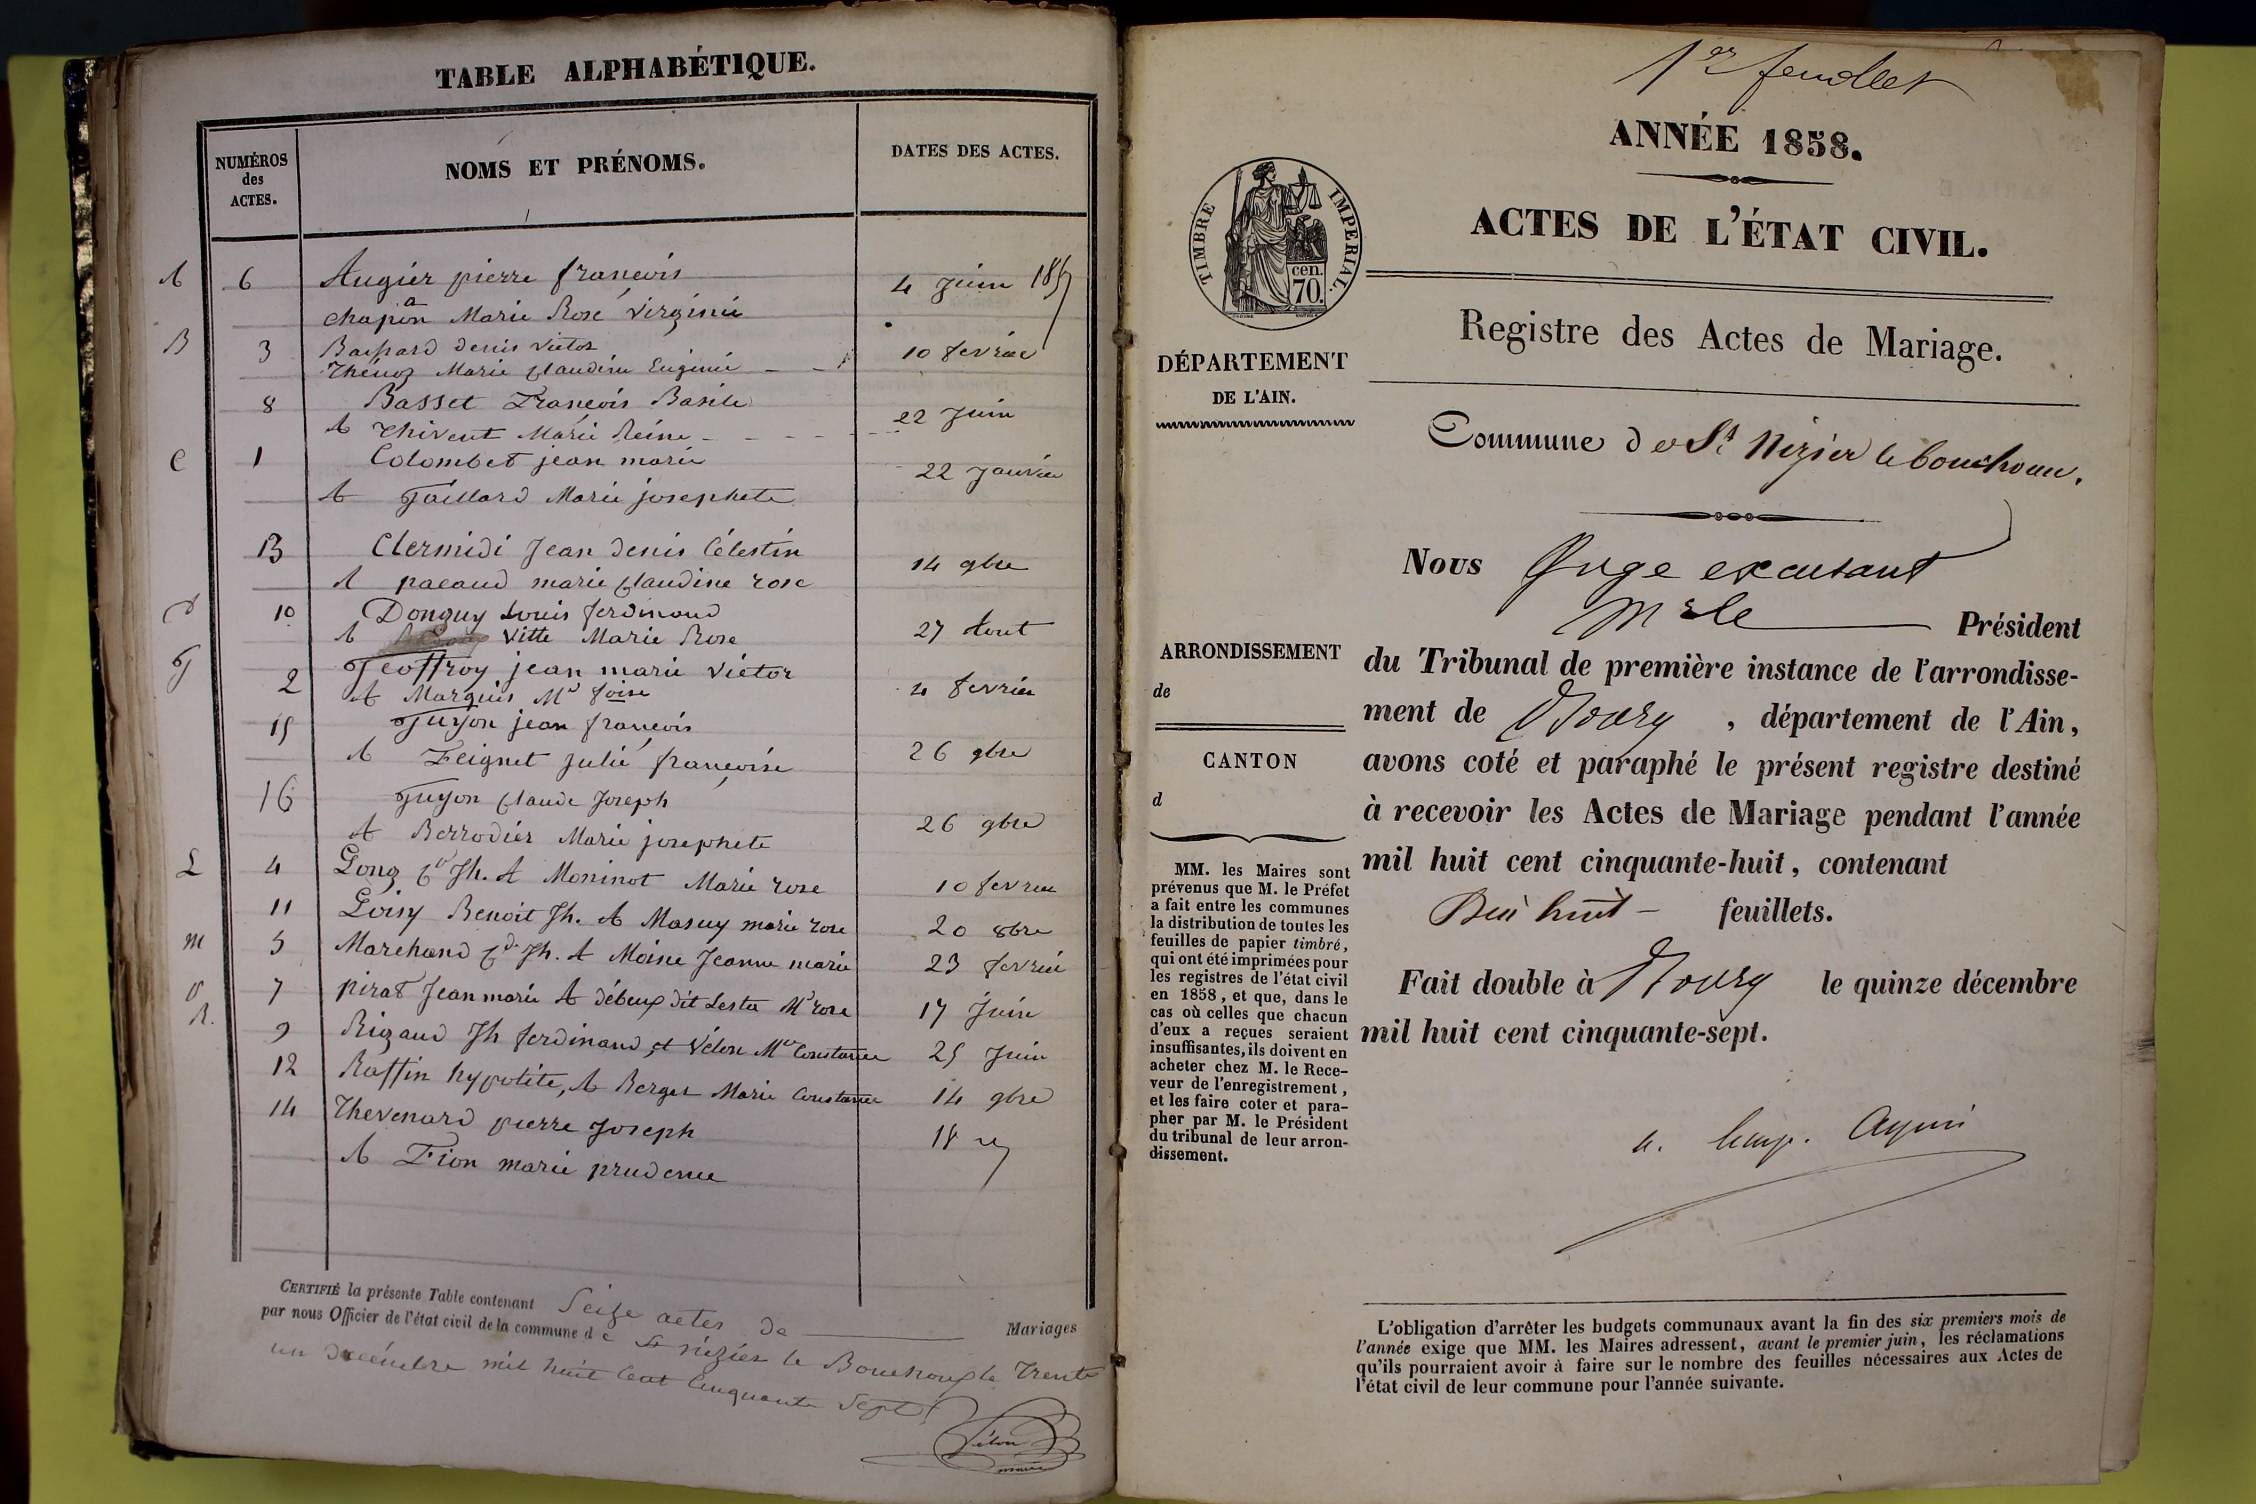 TABLE ALPHABÉTIQUE.
NUMÉROS
des
ACTES.
NOMS ET PRÉNOMS.
DATES DES ACTES.
A 6 Augier pierre francois 4 Juin 1857
a
chapon Marie Rose Virginie
B 3 denis victor 10 fevrier
Thénoz Marie claudine Eugenie
8 Basset François Basile 22 Juin
A Thivent Marie Reine
C 1 Colombet jean marie 22 Janvier
A Gaillard Marie josephete
13 Clermidi Jean denis Célestin 14 9bre
A pacaud marie claudine rose
D 10 Donguy Louis ferdinand 27 Aout
A Vitte Marie Rose
G 2 Geoffroy jean marie victor 4 fevrier
A Marquis
15 Guyon jean francois 26 9bre
A Feignet julie francoise
16 Guyon claude Joseph 26 9bre
A Berrodier Marie josephete
L 4 Long Jh. A Moninot Marie rose 10 fevrier
11 Loisy Benoit Jh. A Masuy marie rose 20 8bre
M 5 Marchand Jh. A Moine Jeanne marie 23 fevrier
P 7 pirat Jean marie A débeux dit Lesta Mie rose 17 Juin
R. 9 Rigaud Jh ferdinand et Vélon Mie Constance 25 Juin
12 Raffin hypolite, A Berger Marie Constance 14 9bre
14 Thevenard pierre Joseph 18
A Fion marie prudence
CERTIFIÉ la présente Table contenant Seize actes de Mariages
par nous Officier de l'état civil de la commune de St nézier le Bouchoux le Trente
un decembre mil huit Cent Cinquante Sept
Vélon
maire
1er feuillet
ANNÉE 1858.
TIMBRE IMPERIAL.
cen.
70.
ACTES DE L'ÉTAT CIVIL.
Registre des Actes de Mariage.
DÉPARTEMENT
DE L'AIN.
Commune de St Nizier le bouchoux.
Nous Juge
Président
ARRONDISSEMENT
de
du Tribunal de première instance de l'arrondisse-
ment de Bourg, département de l'Ain,
CANTON
d
avons coté et paraphé le présent registre destiné
à recevoir les Actes de Mariage pendant l'année
mil huit cent cinquante-huit, contenant
Dix huit feuillets.
Fait double à Bourg le quinze décembre
mil huit cent cinquante-sept.
MM. les Maires sont
prévenus que M. le Préfet
a fait entre les communes
la distribution de toutes les
feuilles de papier timbré,
qui ont été imprimées pour
les registres de l'état civil
en 1858, et que, dans le
cas où celles que chacun
d'eux a reçues seraient
insuffisantes, ils doivent en
acheter chez M. le Rece-
veur de l'enregistrement,
et les faire coter et para-
pher par M. le Président
du tribunal de leur arron-
dissement.
L'obligation d'arrêter les budgets communaux avant la fin des six premiers mois de
l'année exige que MM. les Maires adressent, avant le premier juin, les réclamations
qu'ils pourraient avoir à faire sur le nombre des feuilles nécessaires aux Actes de
l'état civil de leur commune pour l'année suivante.